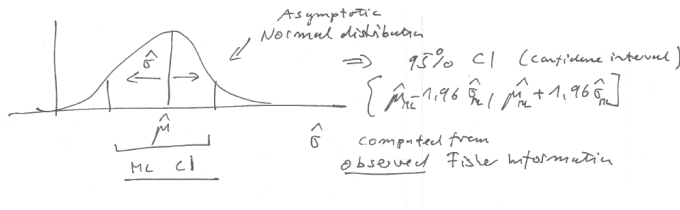 Asymptotic
Normal distribution
σ̂
⇒ 95% CI (confidence interval)
[μ̂_ML - 1,96 σ̂_ML, μ̂_ML + 1,96 σ̂_ML]
μ̂
σ̂ computed from
ML CI
observed Fisher Information